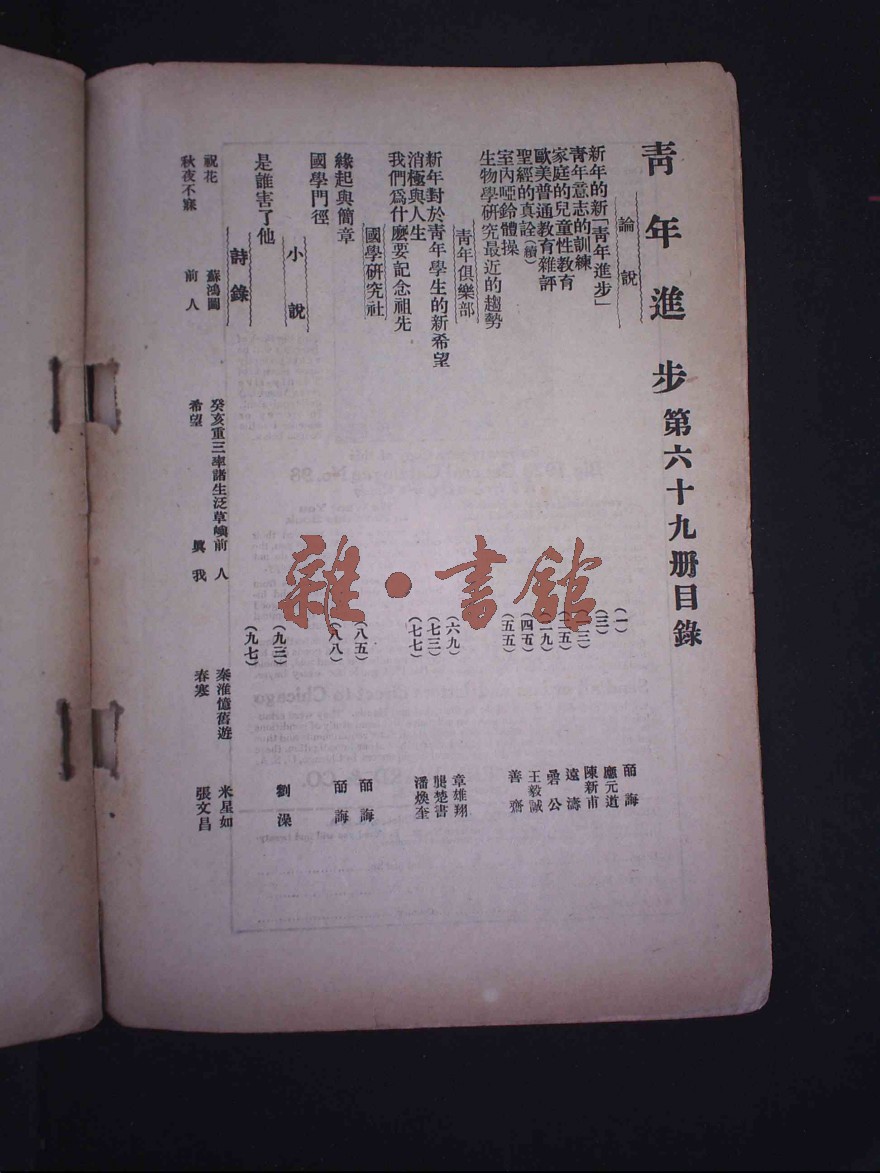 青年進步第六十九册目錄
論說
新年的新「青年進步」 (一) 皕誨
青年意志的訓練 (三) 應元道
家庭的兒童性教育 陳新甫
歐美普通教育雜評 遠濤
聖經的真詮(續) (二九) 公
室內啞鈴體操 (四五) 王毅誠
生物學研究最近的趨勢 (五五) 善齋
青年俱樂部
新年對於青年學生的新希望 (六九) 章雄翔
消極與人生 (七三) 龔楚書
我們爲什麽要記念祖先 (七七) 潘煥奎
國學研究社
緣起與簡章 (八五) 皕誨
國學門徑 (八八) 皕誨
小說
是誰害了他 (九三) 劉澡
詩錄 (九七)
祝花 蘇鴻圖 癸亥重三率諸生泛草 前人 秦淮憶舊遊 米星如
秋夜不寐 前人 希望 異我 春寒 張文昌
雜·書館